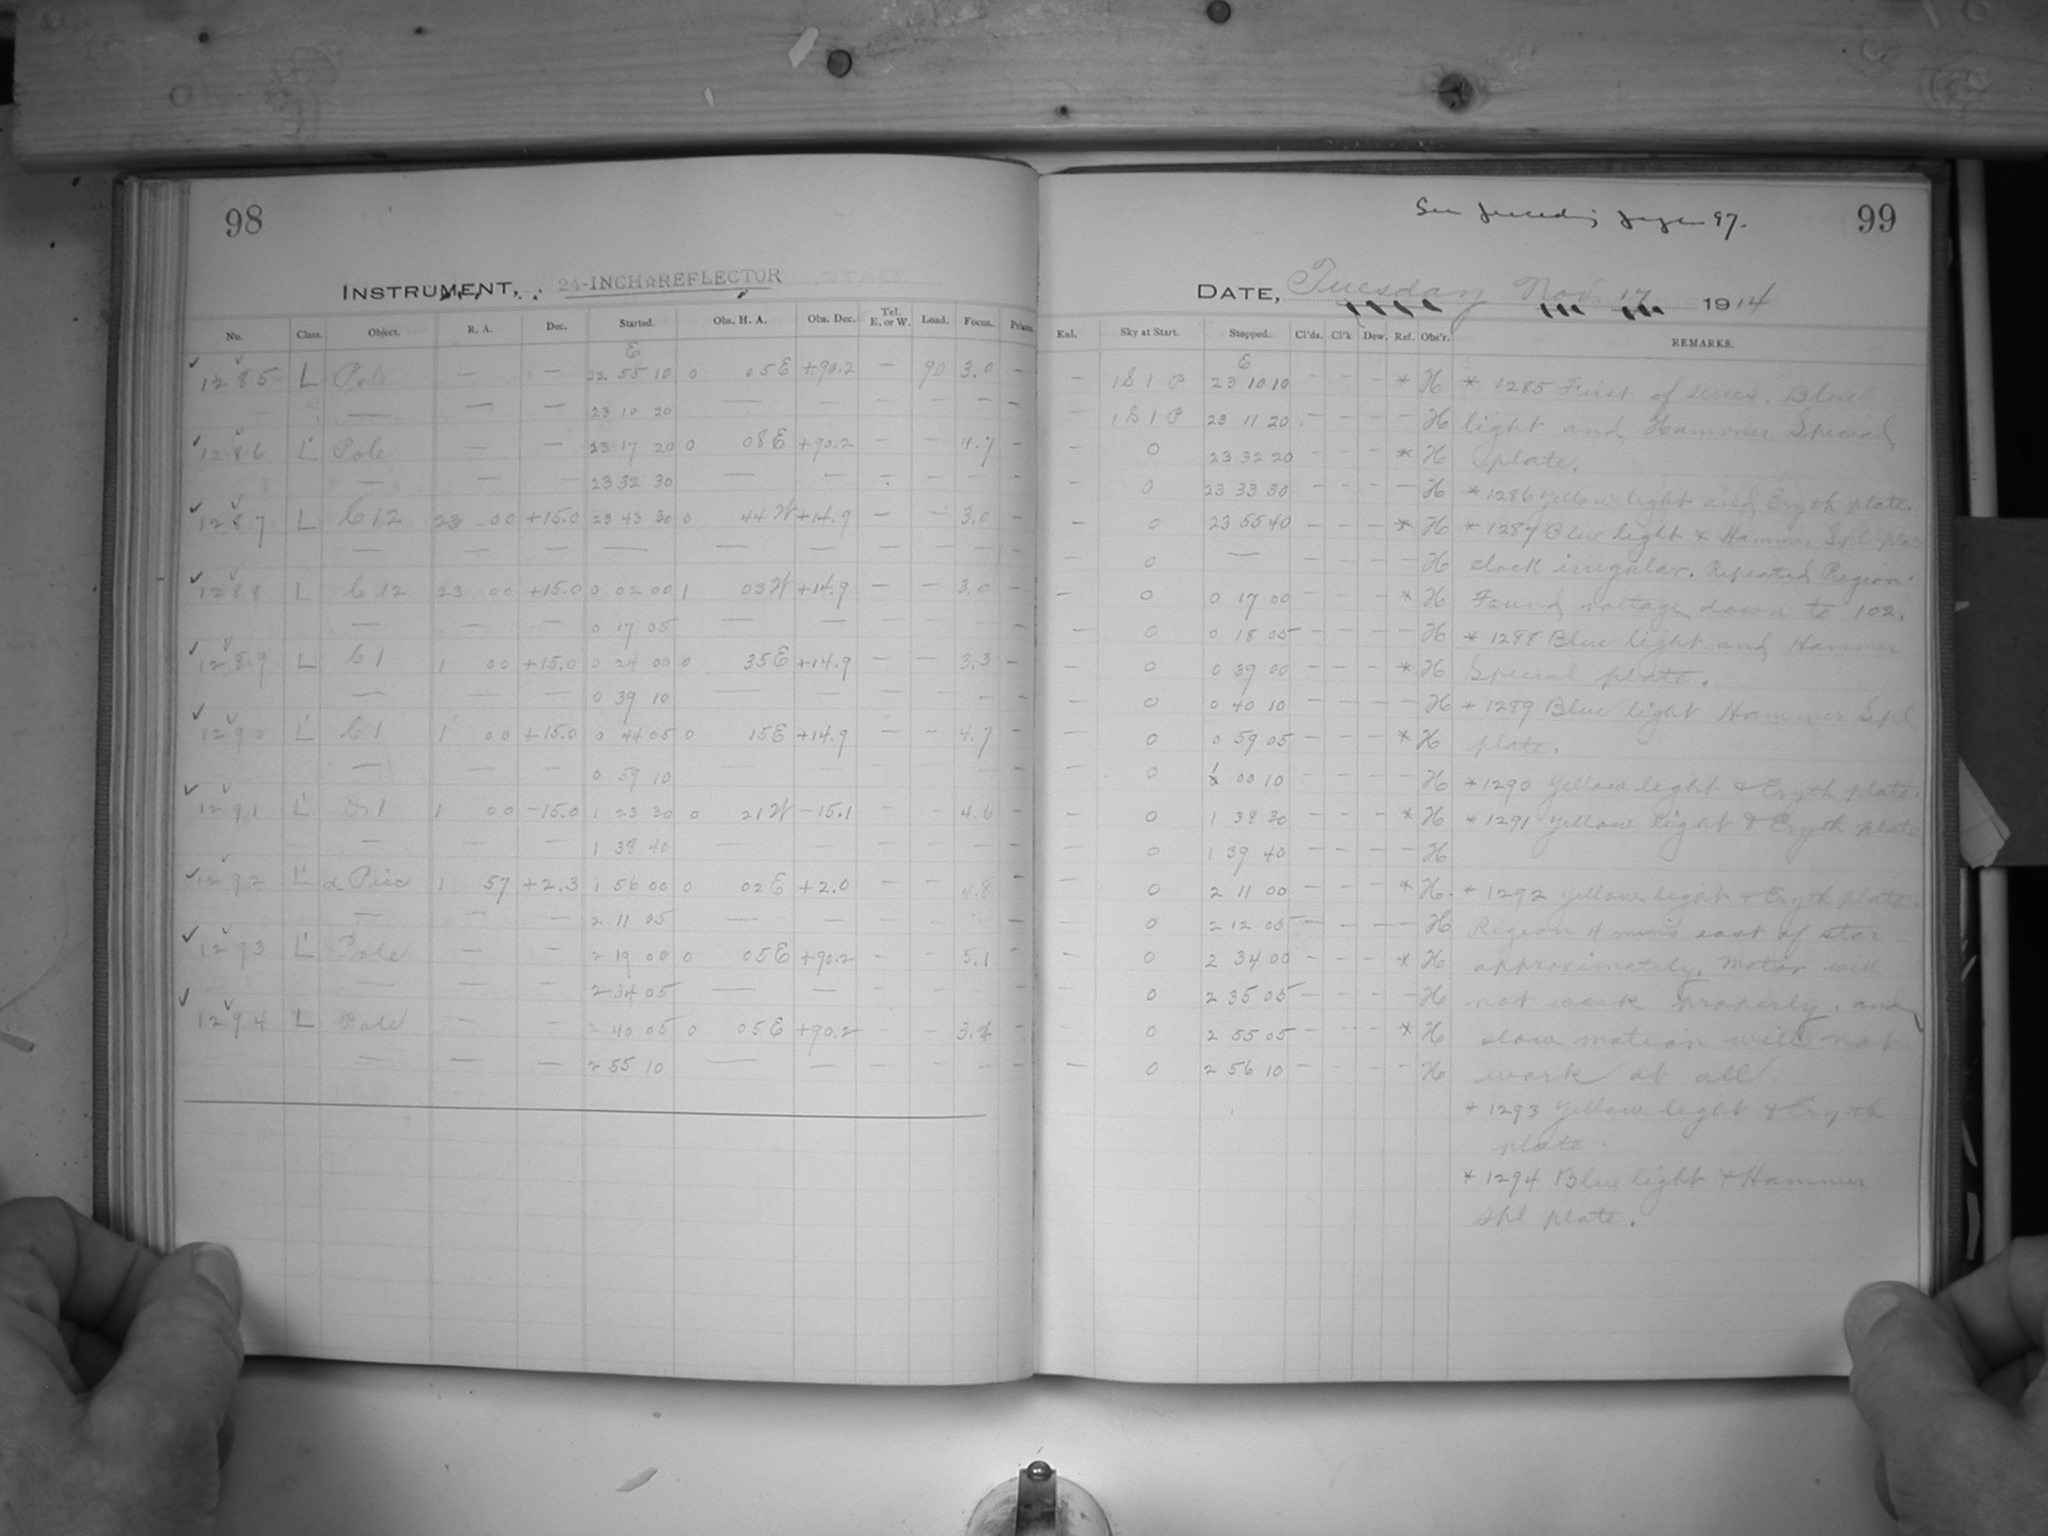 98
INSTRUMENT, 24-INCH REFLECTOR
No. Class. Object. R. A. Dec. Started. Obs. H. A. Obs. Dec. Tel. E. or W. Load. Focus. Prisms
E
1285 L Pole — — 22 55 10 0 05 E +90.2 — 90 3.0 —
— — — 23 10 20 — — — — — —
1286 L' Pole — — 23 17 20 0 08 E +90.2 — — 4.7 —
— — — 23 32 30 — — — — — —
1287 L C 12 23 00 +15.0 23 43 30 0 44 W +14.9 — — 3.0 —
— — — — — — — — — —
1288 L C 12 23 00 +15.0 0 02 00 1 03 W +14.9 — — 3.0 —
— — — 0 17 05 — — — — — —
1289 L C 1 1 00 +15.0 0 24 00 0 35 E +14.9 — — 3.3 —
— — — 0 39 10 — — — — —
1290 L' C 1 1 00 +15.0 0 44 05 0 15 E +14.9 — — 4.7 —
— — — 0 59 10 — — — — — —
1291 L' 1 1 00 -15.0 1 23 30 0 21 W -15.1 — — 4.6 —
— — — 1 38 40 — — — — — —
1292 L' α Pisc 1 57 +2.3 1 56 00 0 02 E +2.0 — — 4.8 —
— — — 2 11 05 — — — — — —
1293 L' Pole — — 2 19 00 0 05 E +90.2 — — 5.1 —
— — — 2 34 05 — — — — — —
1294 L Pole — — 2 40 05 0 05 E +90.2 — — 3.4 —
— — — 2 55 10 — — — — — —
See preceding page 97.
99
DATE, Tuesday Nov. 17 1914
Enl. Sky at Start. Stopped. Cl'ds. Cl'k Dew. Ref. Obs'r. REMARKS.
E
— 1 S 1 P 23 10 10 — — — * H * 1285 First of series. Blue
— 1 S 1 P 23 11 20 — — — — H light and Hammer Special
— 0 23 32 20 — — — * H plate.
— 0 23 33 30 — — — — H * 1286 Yellow light and Eryth plate.
— 0 23 55 40 — — — * H * 1287 Blue light & Hammer Spl plate
— 0 — — — — — H clock irregular. Repeated Region.
— 0 0 17 00 — — — * H Found voltage down to 102.
— 0 0 18 05 — — — — H * 1288 Blue light and Hammer
— 0 0 39 00 — — — * H Special plate.
— 0 0 40 10 — — — — H * 1289 Blue light Hammer Spl
— 0 0 59 05 — — — * H plate.
— 0 1 00 10 — — — H * 1290 Yellow light & Eryth plate.
— 0 1 38 30 — — — * H * 1291 Yellow light & Eryth plate
— 0 1 39 40 — — — — H
— 0 2 11 00 — — — * H. * 1292 Yellow light & Eryth plate.
— 0 2 12 05 — — — — H Region 4 mins east of star
— 0 2 34 00 — — — * H approximately. Motor will
— 0 2 35 05 — — — — H not work properly, and
— 0 2 55 05 — — — * H slow motion will not
— 0 2 56 10 — — — — H work at all.
* 1293 Yellow light & Eryth
plate.
* 1294 Blue light & Hammer
Spl plate.